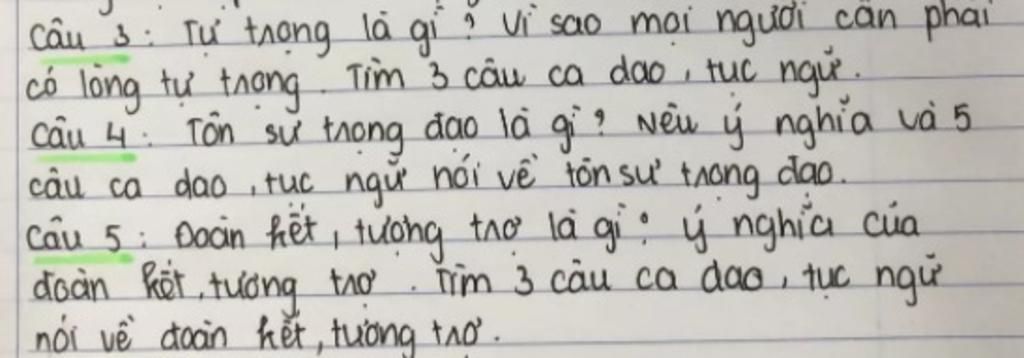 Câu 3: Tự trọng là gì? Vì sao mọi người cần phải
có lòng tự trọng. Tìm 3 câu ca dao, tục ngữ.
Câu 4: Tôn sư trọng đạo là gì? Nêu ý nghĩa và 5
câu ca dao, tục ngữ nói về tôn sư trọng đạo.
Câu 5: Đoàn kết, tương trợ là gì? ý nghĩa của
đoàn kết, tương trợ. Tìm 3 câu ca dao, tục ngữ
nói về đoàn kết, tương trợ.